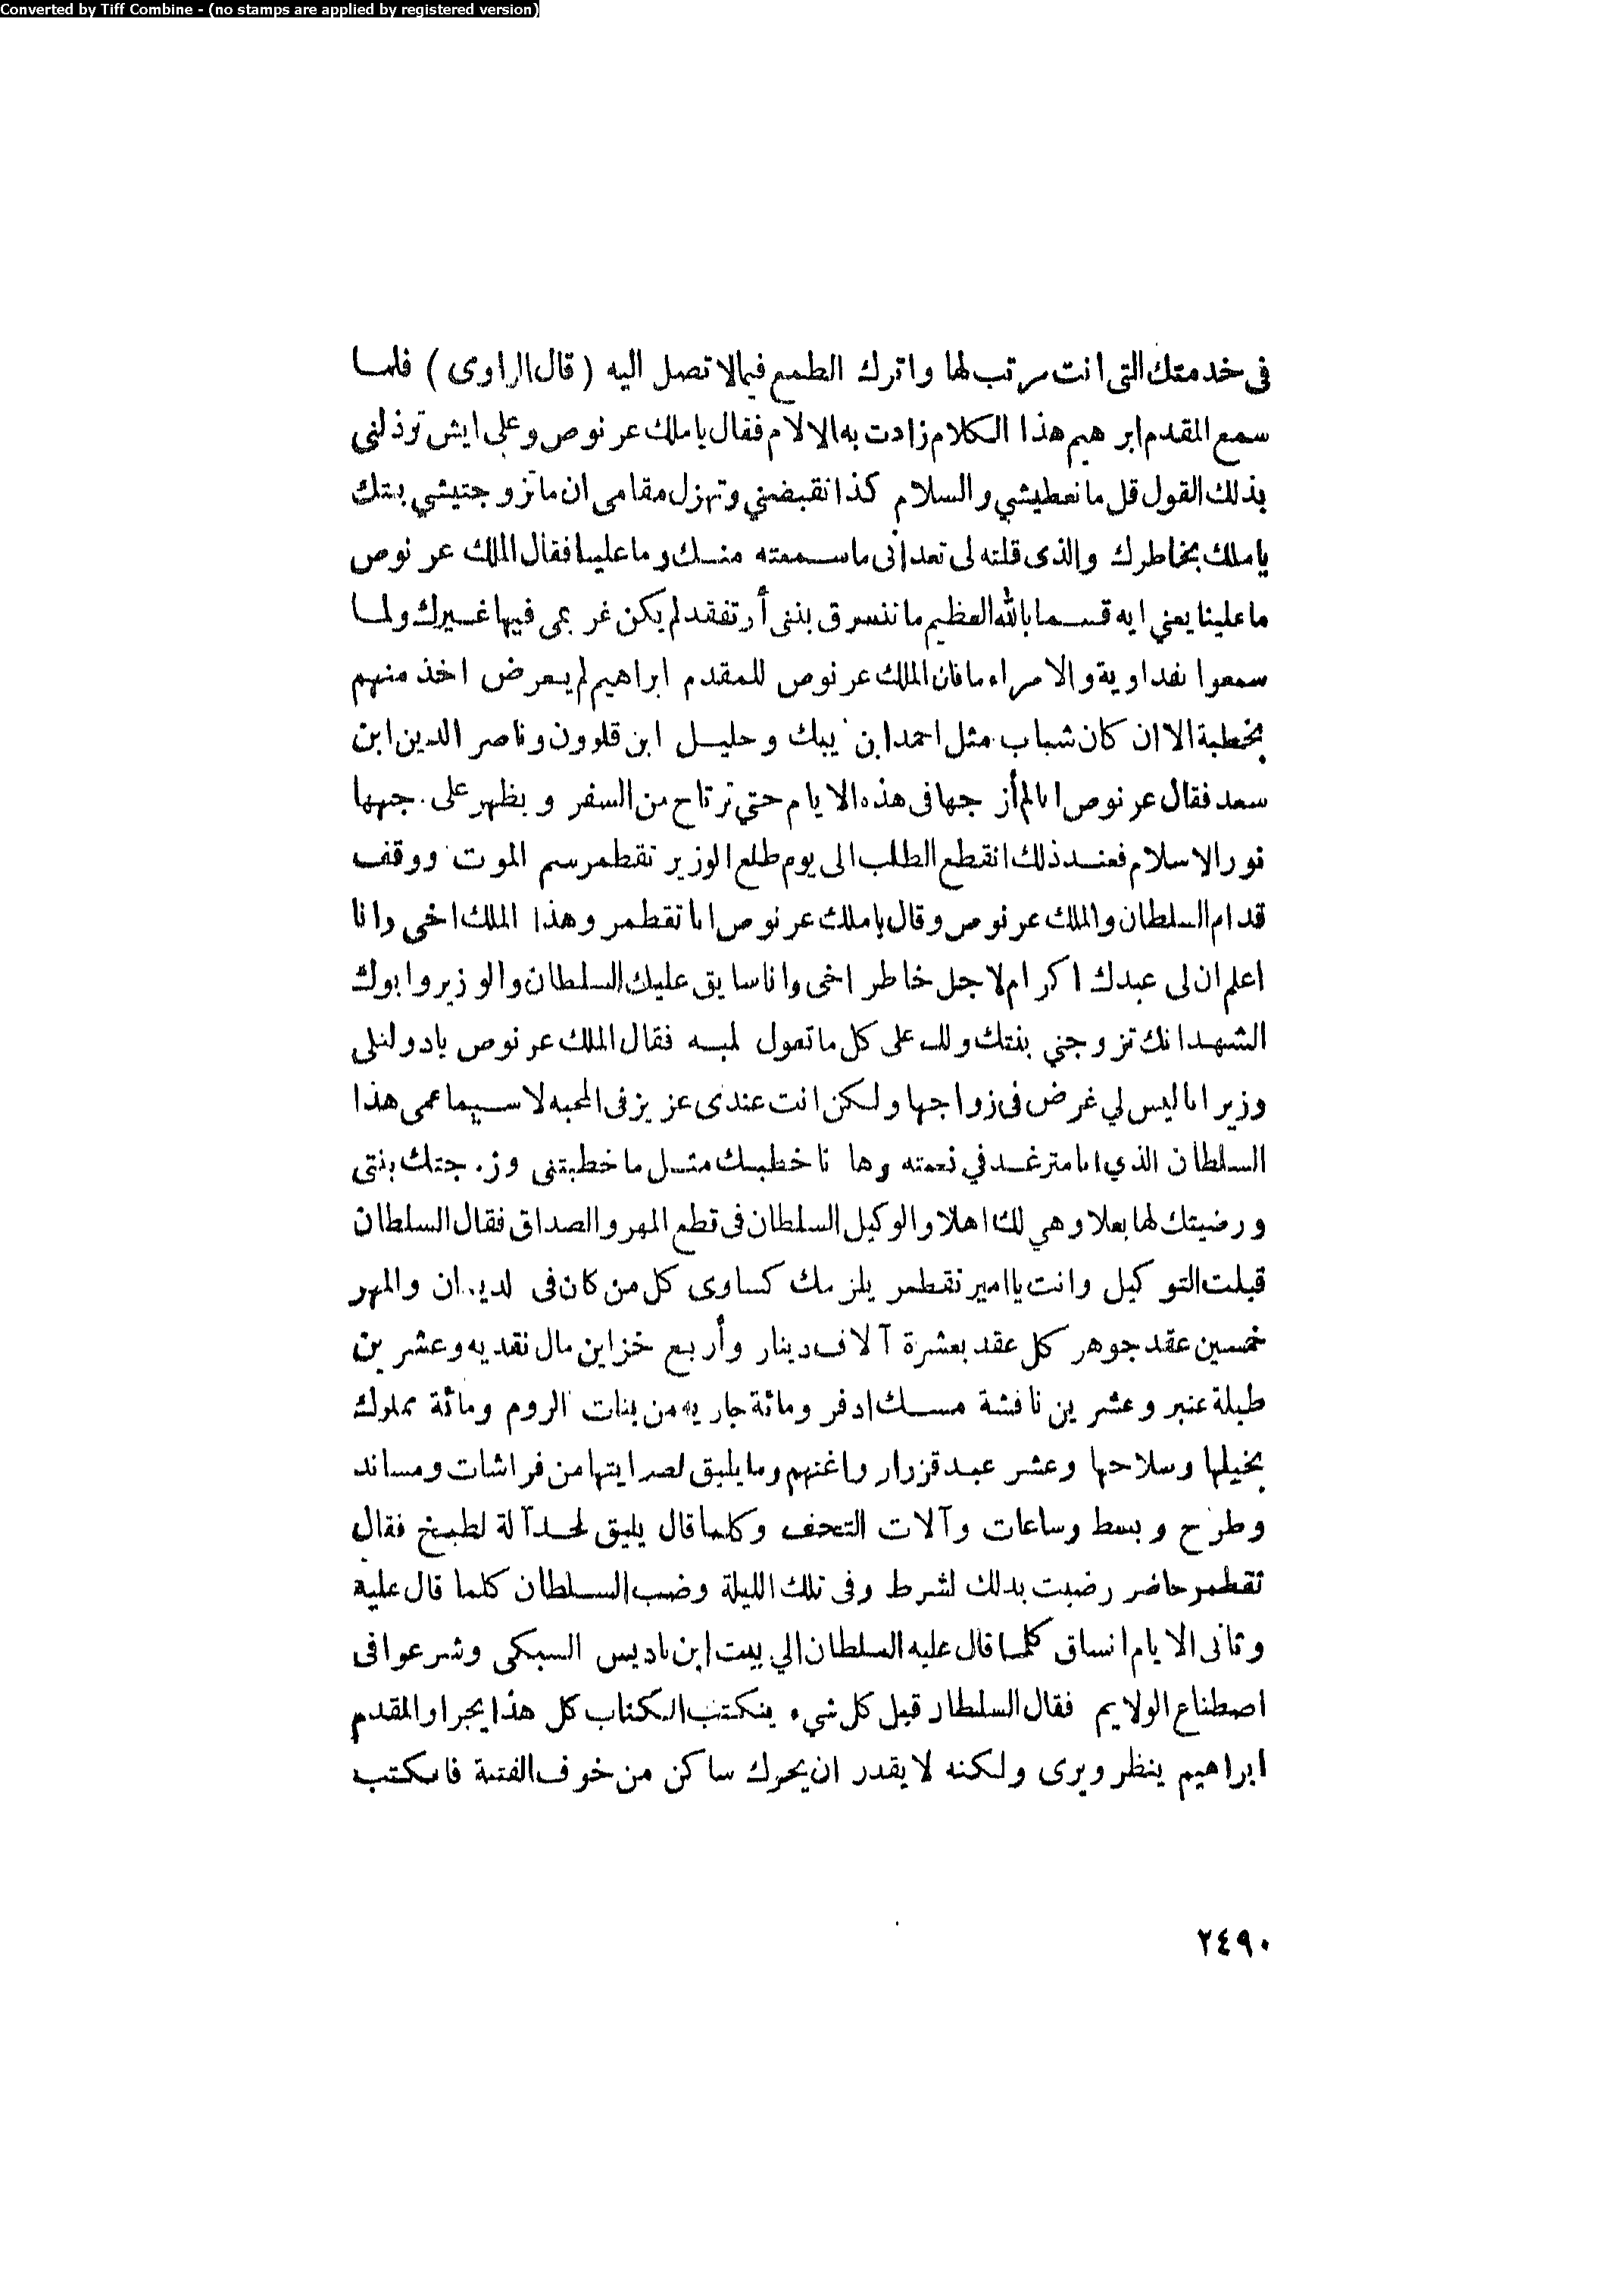 Converted by Tiff Combine - (no stamps are applied by registered version)
فى خدمتك التى انت مرتب لها واترك الطمع فيما لا تصل اليه ( قال الراوى ) فلما
سمع المقدم ابرهيم هذا الكلام زادت به الالام فقال يا ملك عرنوص وعلى ايش توذلنى
بذلك القول قل ما نعطيشي والسلام كذا تقبضني وتهزل مقامى ان ما تزوجتيشي بتك
يا ملك بخاطرك والذى قلته لى تعد انى ما سمعته منك وما علينا فقال الملك عرنوص
ما علينا يعني ايه قسما بالله العظيم ما تنسرق بنتى أو تفقد لم يكن غريمى فيها غيرك ولما
سمعوا الفداوية والامراء ما قال الملك عرنوص للمقدم ابراهيم لم يعرض اخذ منهم
بخطبة الا ان كان شباب مثل احمد ابن يبك وخليل ابن قلوون وناصر الدين ابن
سعد فقال عرنوص انا لم أزوجها فى هذه الايام حتي ترتاح من السفر ويظهر على وجهها
نور الاسلام فعند ذلك انقطع الطلب الى يوم طلع الوزير تقطمر سم الموت ووقف
قدام السلطان والملك عرنوص وقال يا ملك عرنوص انا تقطمر وهذا الملك اخى وانا
اعلم ان لى عندك اكرام لاجل خاطر اخى وانا سايق عليك السلطان والوزير وابوك
الشهدا انك تزوجني بنتك ولك على كل ما تقول لمبه فقال الملك عرنوص يا دولتلى
وزير انا ليس لي غرض فى زواجها ولكن انت عندى عزيز فى المحبه لا سيما عمى هذا
السلطان الذي انا مترغد في نعمته وها نا خطبك مثل ما خطبتنى وزوجتك بنتى
ورضيتك لها بعلا وهي لك اهلا والوكيل السلطان فى قطع المهر والصداق فقال السلطان
قبلت التوكيل وانت يا امير تقطمر يلزمك كساوى كل من كان فى الديوان والمهر
خمسين عقد جوهر كل عقد بعشرة آلاف دينار وأربع خزاين مال نقديه وعشرين
طبلة عنبر وعشرين نافشة مسك ادفر ومائة جاريه من بنات الروم ومائة مملوك
بخيلها وسلاحها وعشر عبد قزرار واغنهم وما يليق لصرايتها من فراشات ومساند
وطرح وبسط وساعات وآلات التحف وكلما قال يليق لحد آلة لطبخ فقال
تقطمر حاضر رضيت بدلك لشرط وفى تلك الليلة وضب السلطان كلما قال عليه
وثانى الايام انساق كلما قال عليه السلطان الي بيت ابن باديس السبكى وشرعوا فى
اصطناع الولايم فقال السلطان قبل كل شيء ينكتب الكتاب كل هذا يجرا والمقدم
ابراهيم ينظر ويرى ولكنه لا يقدر ان يحرك ساكن من خوف الفتنة فانكتب
٢٤٩٠